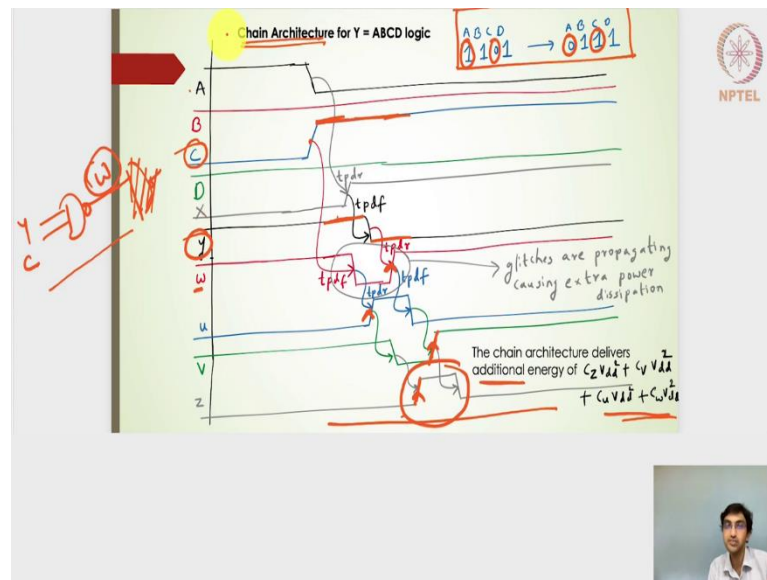 • Chain Architecture for Y = ABCD logic
A B C D
1 1 0 1 → 0 1 1 1
A B C D
NPTEL
A
B
C
D
X
y
w
u
V
Z
tpdr
tpdf
tpdr
tpdf
tpdf
tpdr
glitches are propagating
causing extra power
dissipation
The chain architecture delivers
additional energy of CzVdd² + CvVdd²
+ CuVdd² + CwVdd²
Y
C
W